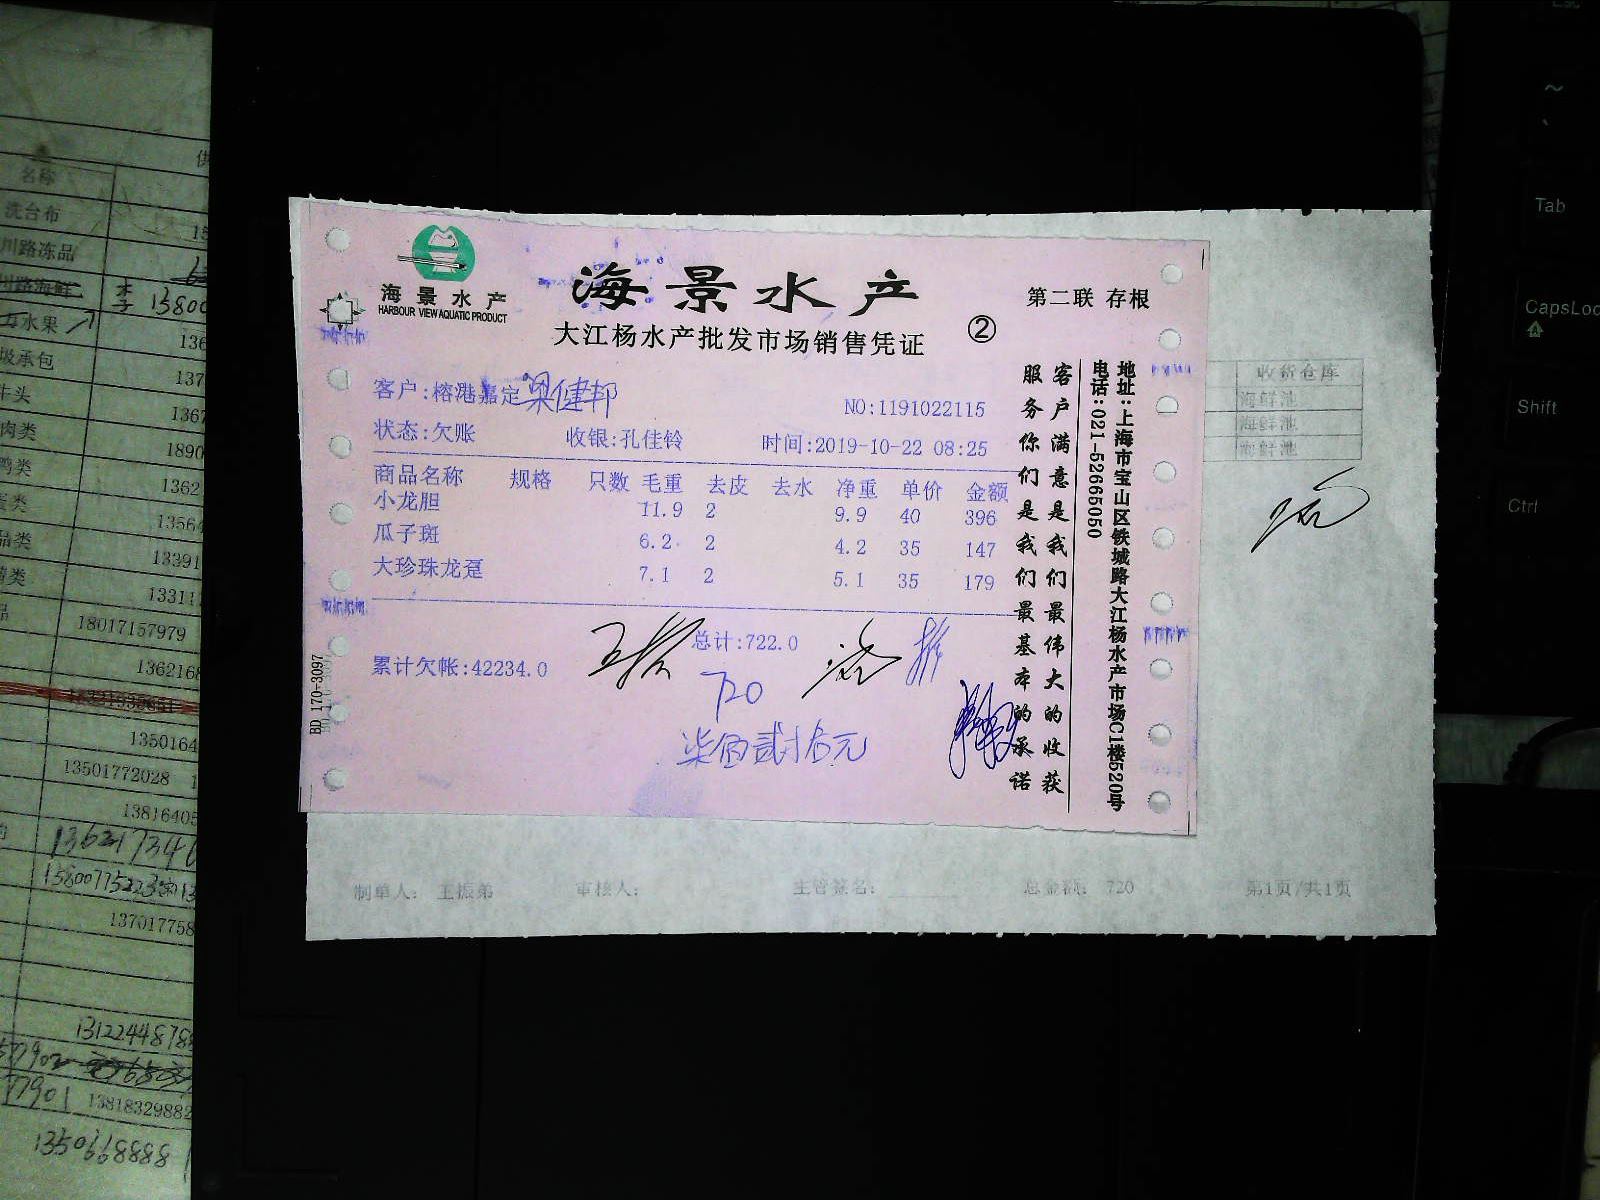 海景水产
HARBOUR VIEW AQUATIC PRODUCT
海景水产
大江杨水产批发市场销售凭证
②
第二联 存根
客户:榕港嘉定梁健邦
NO:1191022115
状态:欠账 收银:孔佳铃 时间:2019-10-22 08:25
商品名称 规格 只数 毛重 去皮 去水 净重 单价 金额
小龙胆 11.9 2 9.9 40 396
瓜子斑 6.2 2 4.2 35 147
大珍珠龙趸 7.1 2 5.1 35 179
总计:722.0
累计欠帐:42234.0
720
柒佰贰拾元
客户满意是我们最伟大的收获
服务你们是我们最基本的承诺
地址:上海市宝山区铁城路大江杨水产市场C1楼520号
电话:021-52665050
BD 170-3097
收货仓库
海鲜池
海鲜池
海鲜池
制单人: 王振弟 审核人: 主管签名: 总金额: 720 第1页/共1页
供
名称
洗台布
川路冻品
川路海鲜
水果
圾承包
牛头
肉类
鸭类
品类
15800
136
137
1367
1890
1362
13564
13391
13311
18017157979
1362168
1350164
13501772028
13816405
136217346
15800775223
137017758
13122448788
13818329882
Tab
CapsLoc
Shift
Ctrl